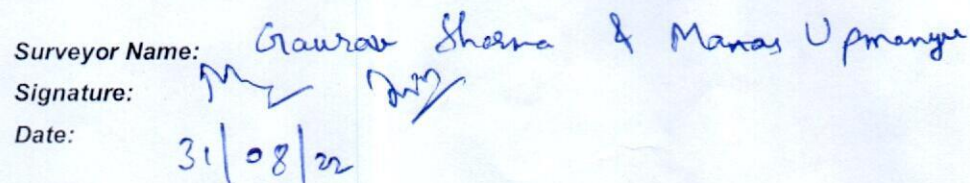 Surveyor Name: Gaurav Sharma & Manas Upmanyu
Signature:
Date: 31/08/22